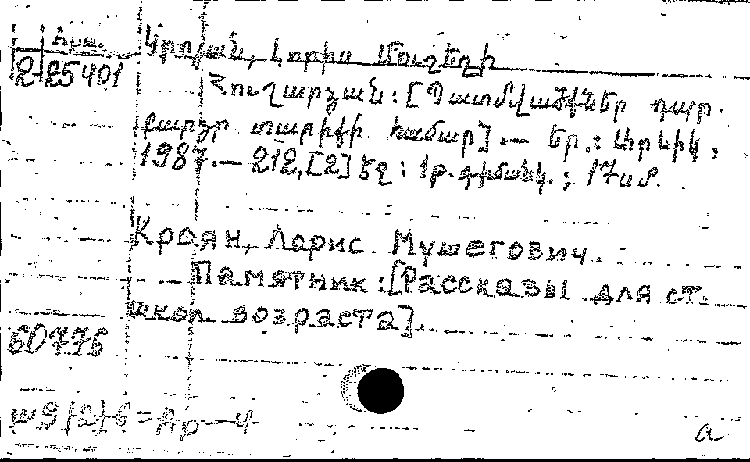 Կրոյան, Լորիս Մուշեղի
2-25401
Հուշարձան: [Պատմվածքներ դպր.
բարձր տարիքի համար].— Եր.: Արևիկ,
1987.— 212, [2] էջ: 1 թ. գիմնկ.; 17սմ.
Кроян, Лорис Мушегович.
Памятник: [Рассказы для ст.
школ возраста].
60776
а